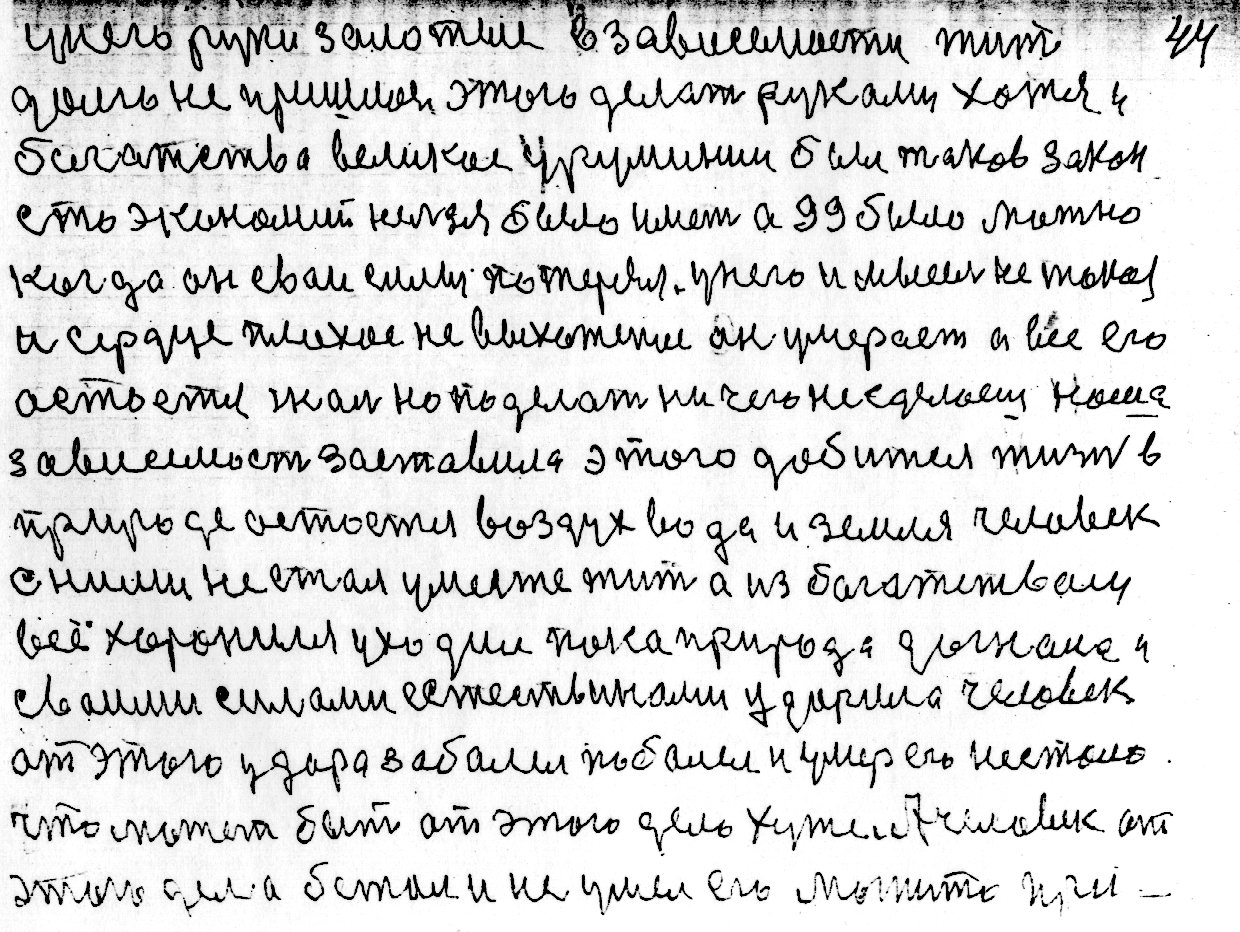 унего руки залотые взависемости тит 44
долго не пришлося этого делат руками хотя и
багатства великое урумынии был таков закон
сто экономий нелзя было имет а 99 было можно
когда он сваи силы потерял. унего и мысел не такая
и сердце плохое не выхотете он умерает а все его
астоется жал но поделат ничего несделаеш наша
зависемост заставила этого добится тизн в
природе астоется воздух вода и земля человек
сними не стал уместе тит а из багатетвом
всё хоронился уходил пока природа догнала и
сваими силами естествинами ударила человек
от этого удара забалел поболел и умер его нестало
что может быт от этого дела хуже. А человек от
этого дела бстал и не умел его можито при -